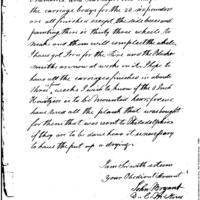 the carriage bodys for the 22 six pounders
are all finished except the six boxes and
painting there is thirty three wheels to
make and then will compleat the whole,
have got Iron for the Tire and the Black
smiths are now at work on it, I hope to
have all the carriages finished in about
three weeks I wish to know if the 8 Inch
Howitzers is to be mounted here for we
have used all the plank that was bought
for them that was sent to Philadelphia
if they are to be done here it is necessary
to have the put up a drying.
I am Sir with esteem
your Obedient Servant
John Bryant